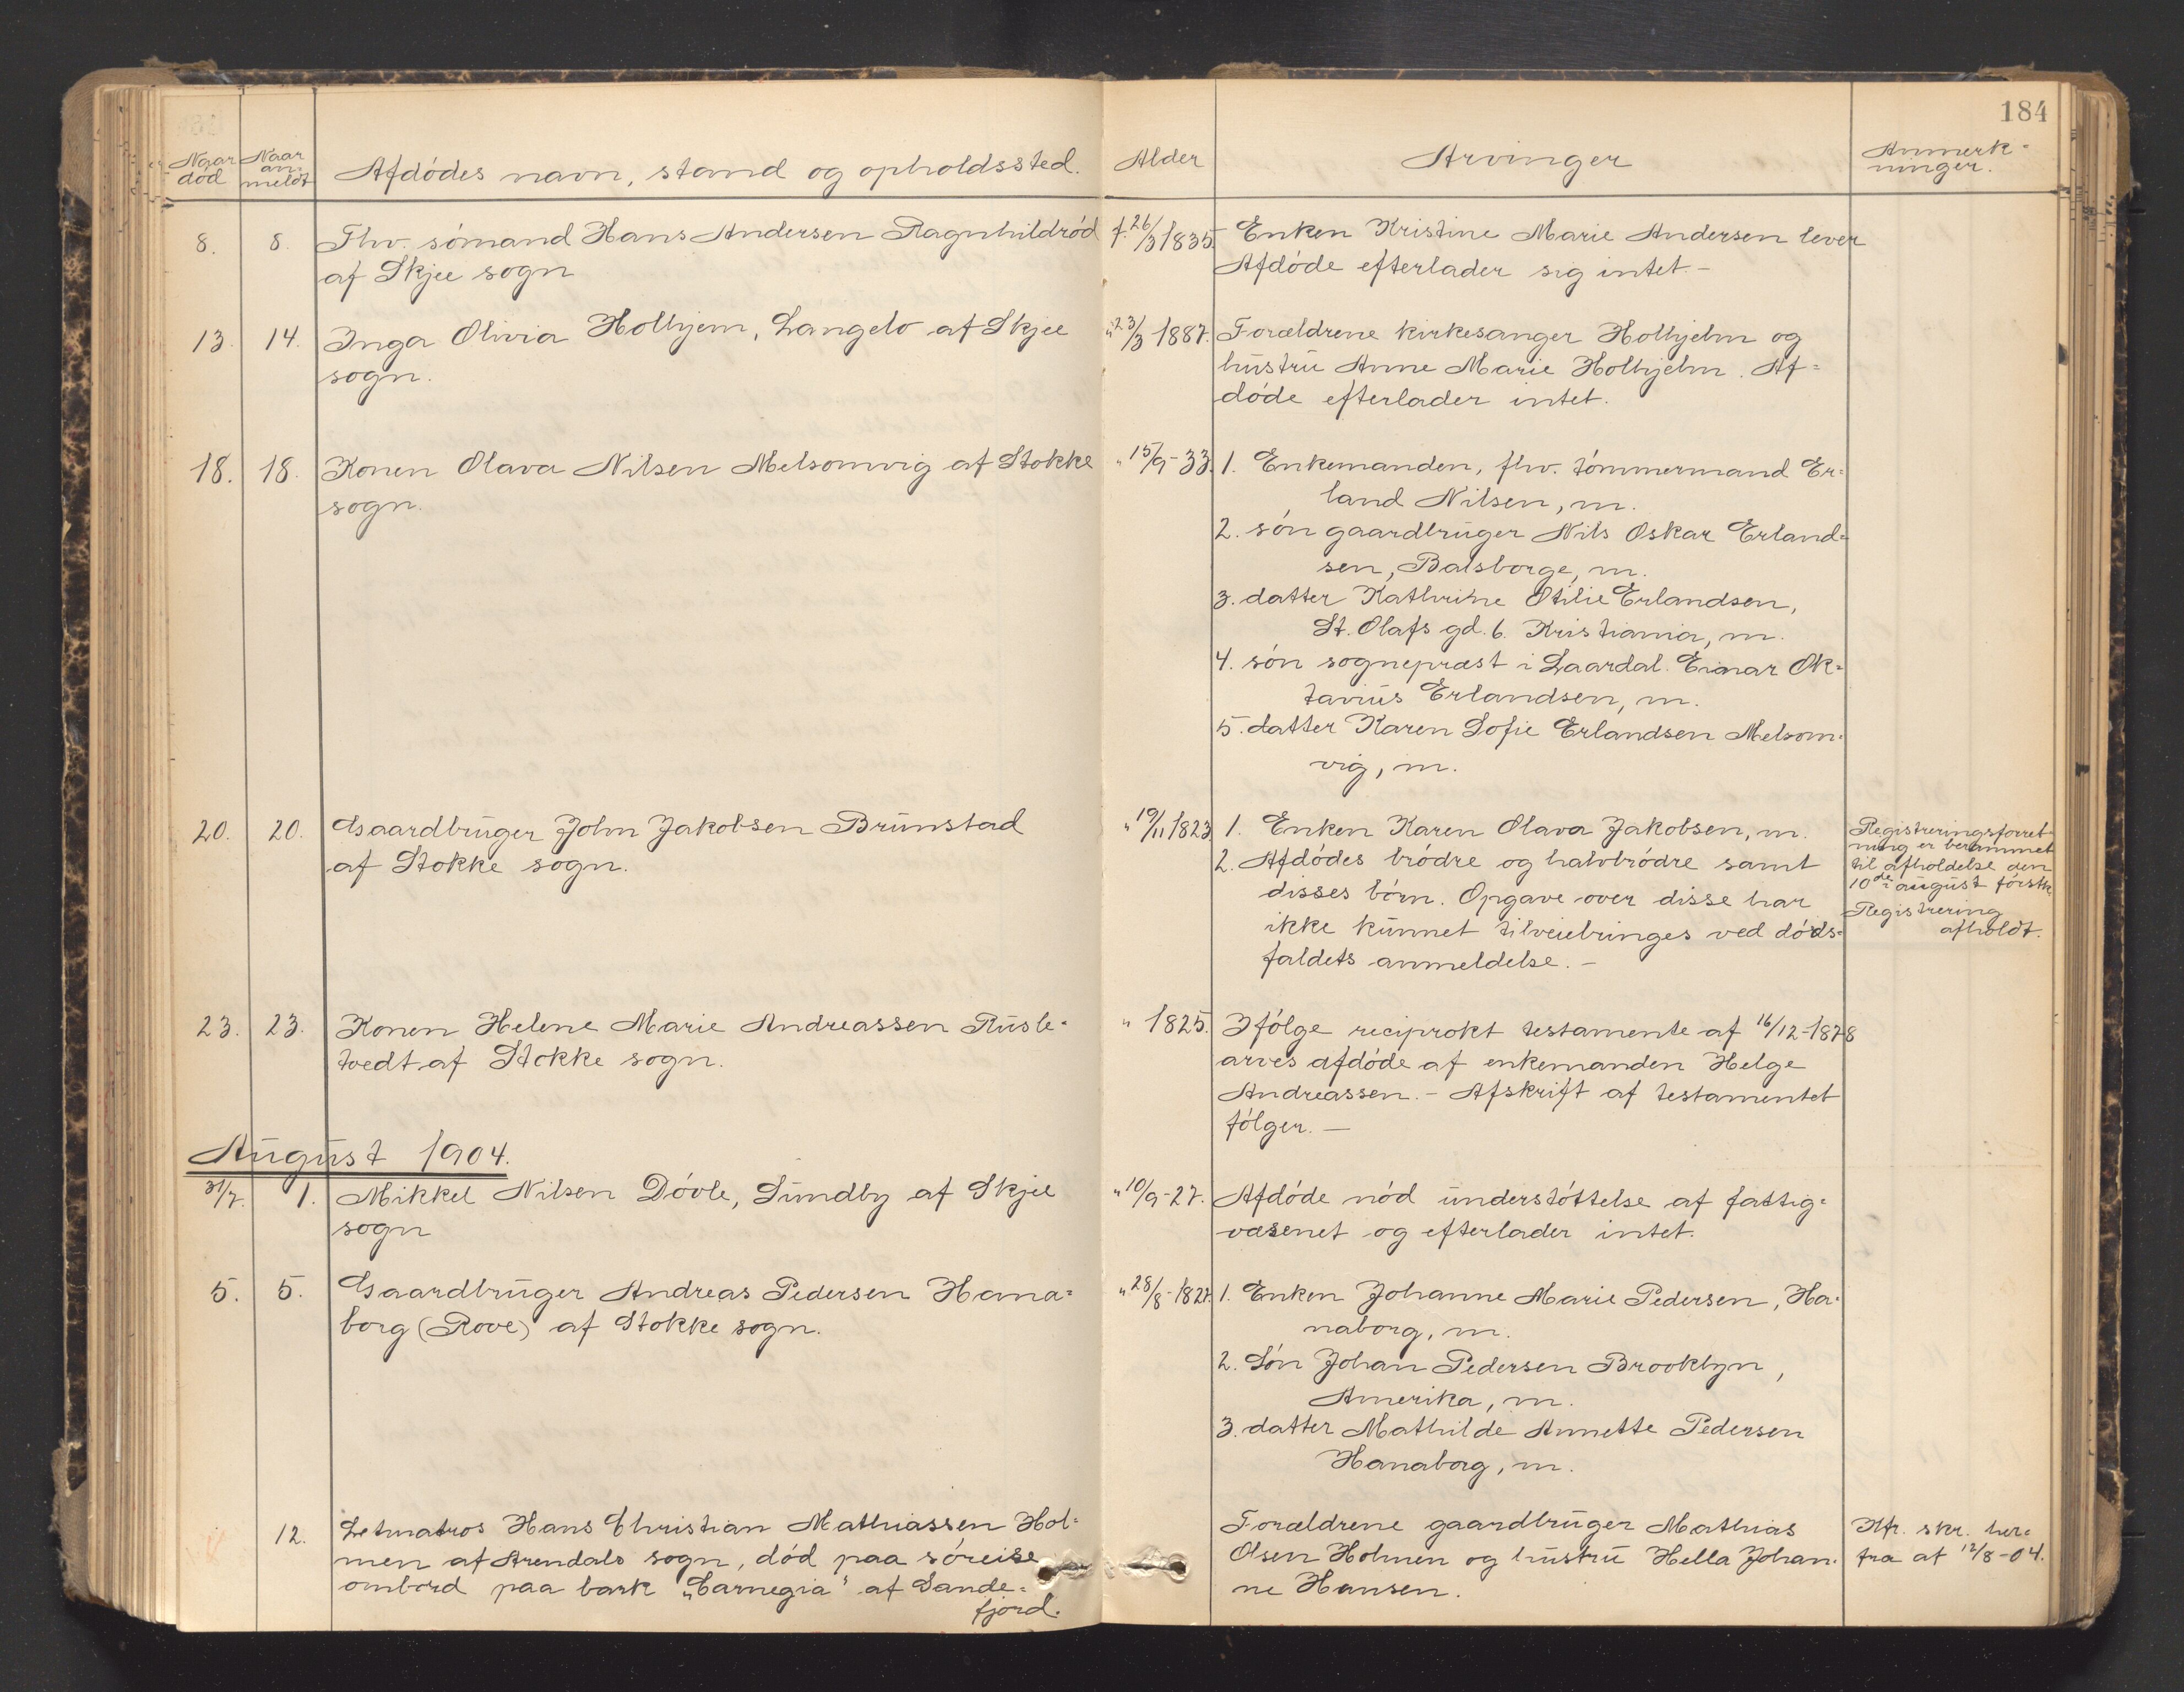 184
Naar död
Naar an-meldt
Afdödes navn, stand og opholdssted.
Alder
Arvinger
Anmerk-
ninger.
8. 8. Fhv. sömand Hans Andersen Ragnhildröd f. 26/3 1835. Enken Kristine Marie Andersen lever
af Skjee sogn Afdöde efterlader sig intet. -
13. 14. Inga Olivia Holhjem, Langelo af Skjee " 23/3 1887. Forældrene kirkesanger Holhjelm og
sogn. hustru Anne Marie Holhjelm. Af=
döde efterlader intet.
18. 18. Konen Olava Nilsen Melsomvig af Stokke " 15/9-33. 1. Enkemanden, fhv. tömmermand Er=
sogn. land Nilsen, m.
2. sön gaardbruger Nils Oskar Erland=
sen, Balsborge, m.
3. datter Kathrine Otilie Erlandsen,
St. Olafs gd. 6. Kristiania, m.
4. sön sogneprast i Laardal. Einar Ok=
tavius Erlandsen, m.
5. datter Karen Sofie Erlandsen Melsom=
vig, m.
20. 20. Gaardbruger John Jakobsen Brunstad " 19/11 1823 1. Enken Karen Olava Jakobsen, m.
af Stokke sogn. 2. Afdödes brödre og halvbrödre samt
disses börn. Opgave over disse har
ikke kunnet tilveiebringes ved döds=
faldets anmeldelse. -
Registreringsforret-
ning er berammet
til afholdelse den
10de august förstk.
Registrering
afholdt.
23. 23. Konen Helene Marie Andreassen Rusle= " 1825. Ifölge reciprokt testamente af 16/12-1878
tvedt af Stokke sogn. arves afdöde af enkemanden Helge
Andreassen. - Afskrift af testamentet
fölger. -
August 1904.
31/7. 1. Mikkel Nilsen Dövle, Sundby af Skjee " 10/9-27. Afdöde nöd understöttelse af fattig=
sogn vasenet og efterlader intet.
5. 5. Gaardbruger Andreas Pedersen Hana= " 28/8-1827. 1. Enken Johanne Marie Pedersen, Ha=
borg (Rove) af Stokke sogn. naborg, m.
2. Sön Johan Pedersen Brooklyn,
Amerika, m.
3. datter Mathilde Annette Pedersen
Hanaborg, m.
12. Letmatros Hans Christian Mathiassen Hol= Forældrene gaardbruger Mathias Kfr. skr. her=
men af Arendals sogn, död paa söreise Olsen Holmen og hustru Hella Johan= fra af 12/8-04.
ombord paa bark "Carnegia" af Sande= ne Hansen.
fjord.